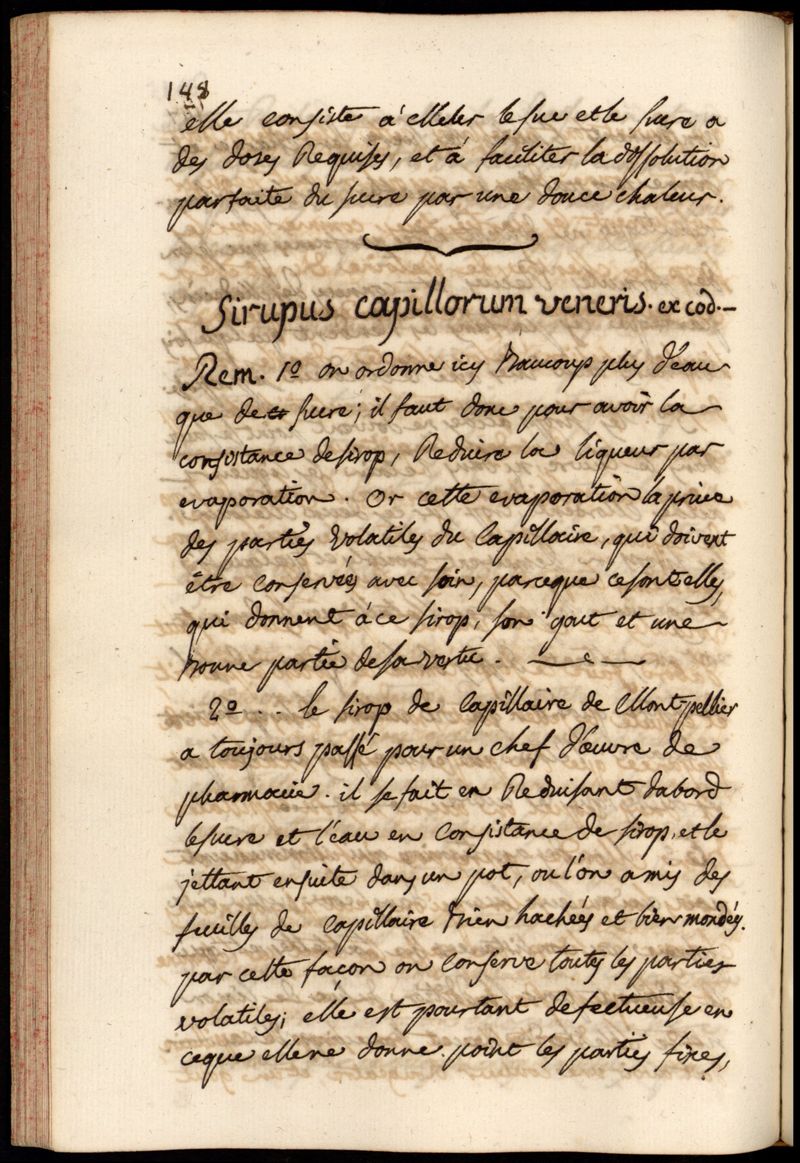 148
elle consiste á Meler le suc et le sucre a
des doses Requises, et á faciliter la dissolution
parfaite du sucre par une douce chaleur.
Sirupus capillorum veneris. ex cod.—
Rem. 1º on ordonne icy baucoup plus d'eau
que de sucre; il faut donc pour avoir la
consistance de sirop, Reduire la liqueur par
evaporation. Or cette evaporation la prive
des parties Volatiles du Capillaire, qui doivent
être conservées avec soin, parceque ce sont elles,
qui donnent á ce sirop, son gout et une
bonne partie de sa vertu. —
2º .. le sirop de Capillaire de Montpellier
a toujours passé pour un chef d'œuvre de
pharmacie. il se fait en Reduisant dabord
le sucre et l'eau en Consistance de sirop, et le
jettant ensuite dans un pot, ou l'on a mis des
feuilles de Capillaire bien hachées et bien mondées.
par cette façon on conserve toutes les parties
volatiles; elle est pourtant defectueuse en
ceque elle ne donne point les parties fixes,